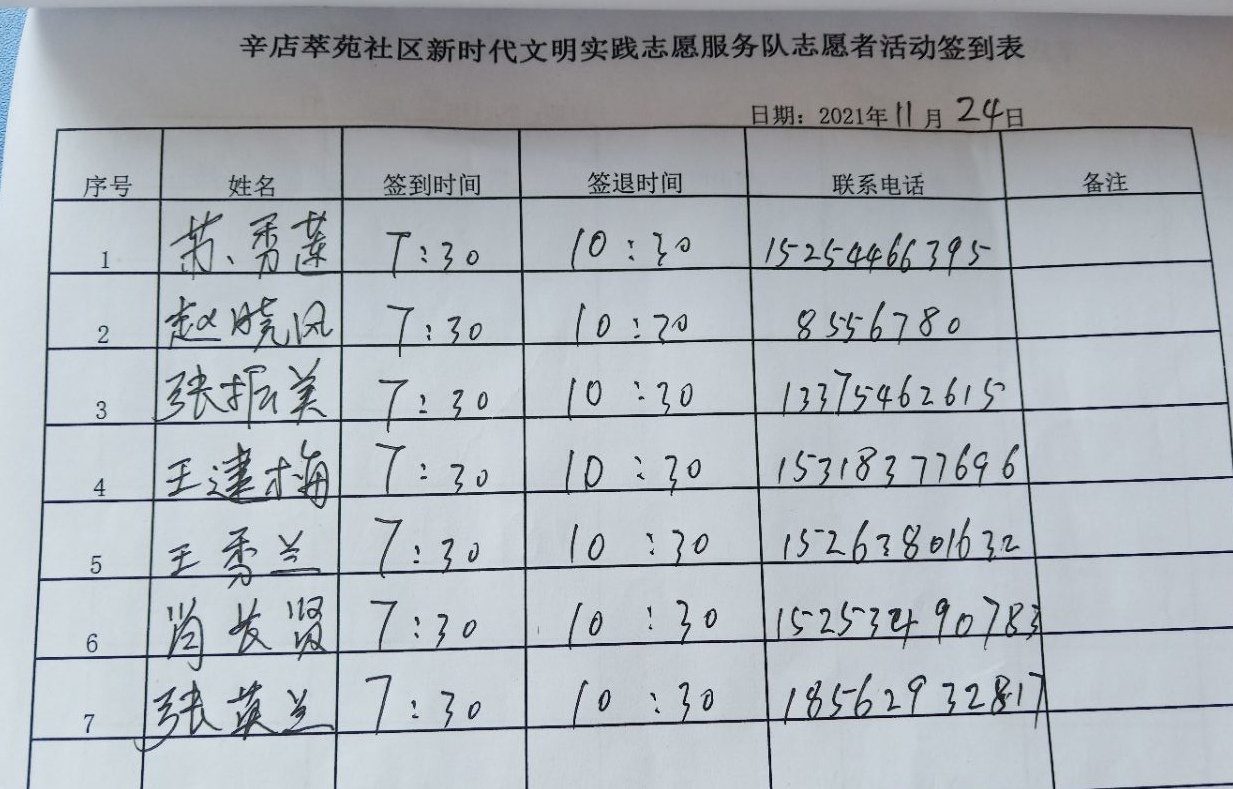 辛店萃苑社区新时代文明实践志愿服务队志愿者活动签到表
日期：2021年11月24日
序号 姓名 签到时间 签退时间 联系电话 备注
1 苏秀莲 7:30 10:30 15254466395
2 赵晓风 7:30 10:30 8556780
3 张振美 7:30 10:30 13375462615
4 王建梅 7:30 10:30 15318377696
5 王秀兰 7:30 10:30 15263801632
6 肖长贤 7:30 10:30 15253490783
7 张英兰 7:30 10:30 18562932817